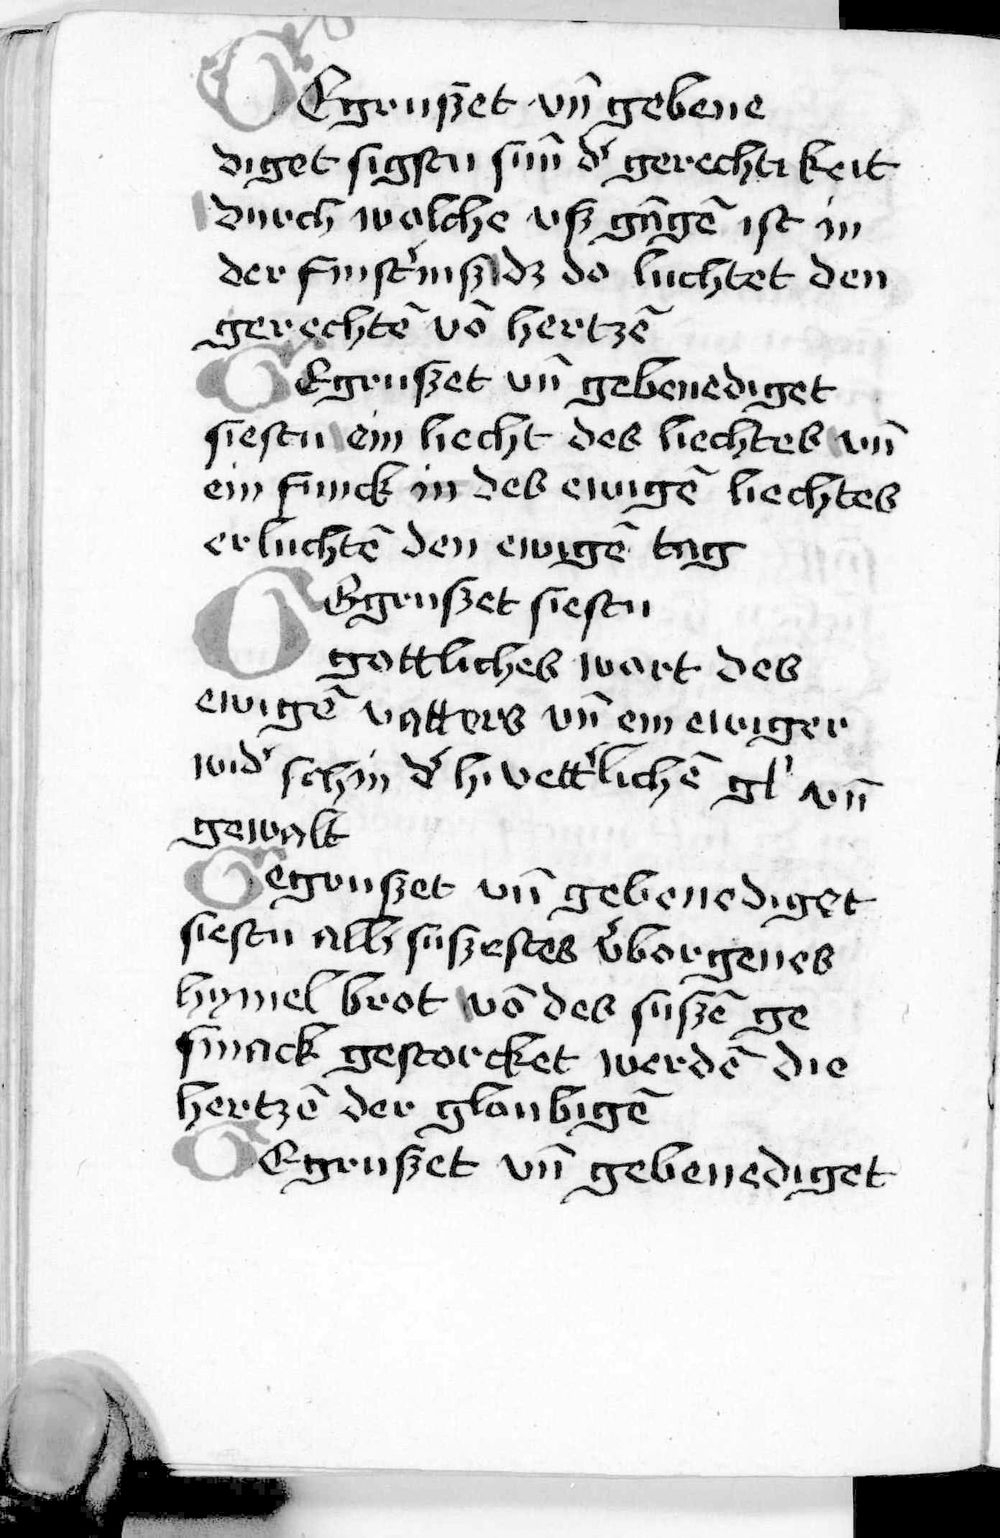 GEgruszet vn̄ gebene
diget sigstu sun̄ d' gerechtikeit
durch wolche vsz gāgē ist in
der finst'nisz dz do luchtet den
gerechtē vō hertzē
GEgruszet vn̄ gebenediget
siestu ein liecht des liechtes vn̄
ein funck in des ewigē liechtes
erluchtē den ewigē tag
GEgruszet siestu
gottliches wort des
ewigē vatters vn̄ ein ewiger
wid' schin d' hivett'lichē gl' vn̄
gewalt
Gegruszet vn̄ gebenediget
siestu süszestes v'borgenes
hymel brot vō des süszē ge
smack gestorcket werdē die
hertzē der gloubigē
GEgruszet vn̄ gebenediget